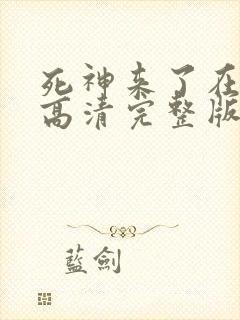 死神来了在
高清完整版
藍劍